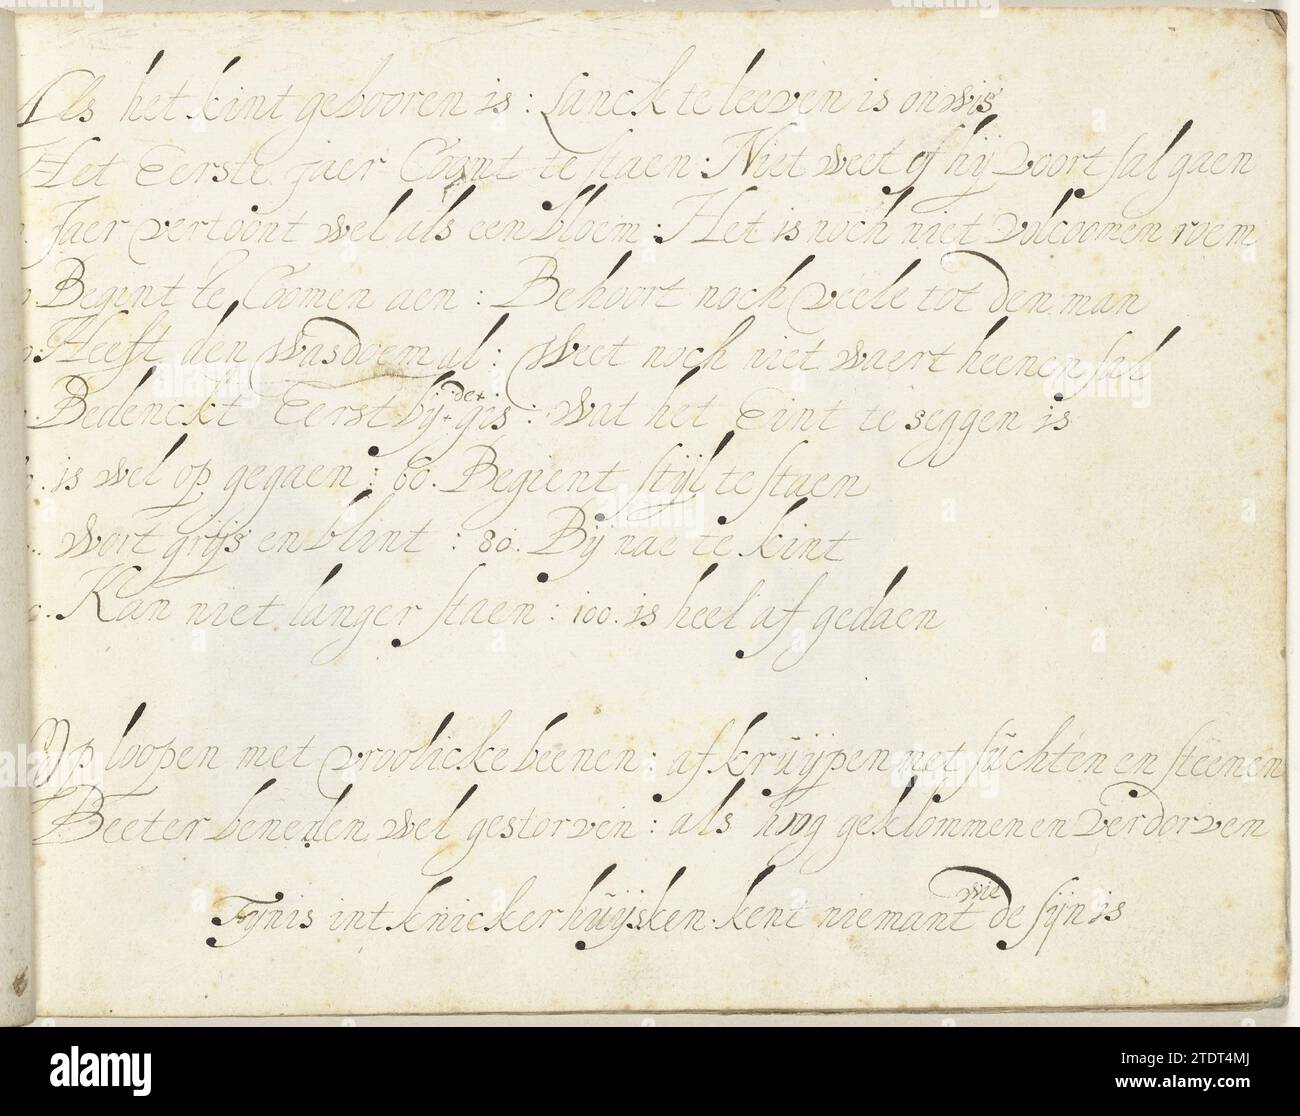 Als het kint gebooren is : Lanck te leeven is onwis
Het Eerste jaer Coomt te staen : Niet weet of hij voort sal gaen
Jaer vertoont wel als een bloem : Het is noch niet volcoomen roem
Begint te Coomen aen : Behoort noch veele tot den man
Heeft den wasdoem al : Weet noch niet waert heenen sal
Bedenckt Eerst bij + de + gis : wat het Eint te seggen is
. is wel op gegaen : 60. Begient stijl te staen
. wort grijs en blint : 80. Bij nae te kint
. Kan niet langer staen : 100. is heel af gedaen
Op loopen met vroolicke beenen : af kruijpen met suchten en steenen
Beeter beneden wel gestorven : als hoog geklommen en verdorven
Tynis int knickerhuijsken kent niemant wie de sijn is
alamy
Image ID: 2TDT4MJ
www.alamy.com